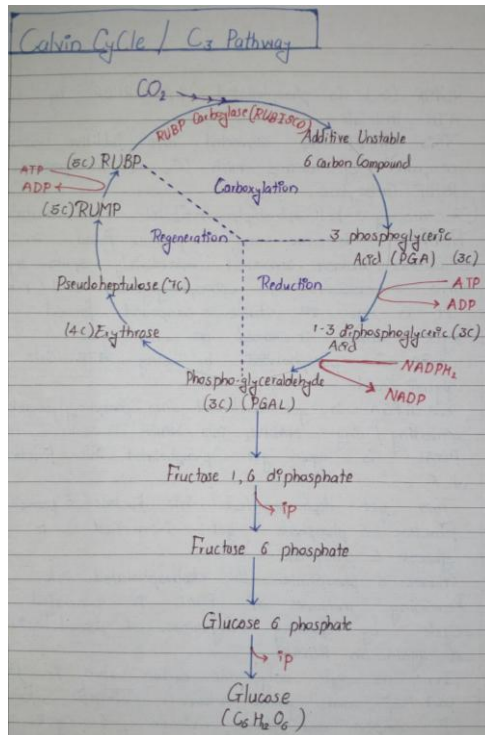 Calvin Cycle / C3 Pathway
CO2
RUBP Carboxylase (RUBISCO)
Additive Unstable
6 carbon Compound
(5c) RUBP
ATP
ADP
(5c) RUMP
Carboxylation
Regeneration
Reduction
3 phosphoglyceric
Acid (PGA) (3c)
ATP
ADP
Pseudoheptulose (7c)
(4c) Erythrose
1-3 diphosphoglyceric (3c)
Acid
NADPH2
NADP
Phospho-glyceraldehyde
(3c) (PGAL)
Fructose 1,6 diphosphate
ip
Fructose 6 phosphate
Glucose 6 phosphate
ip
Glucose
(C6H12O6)